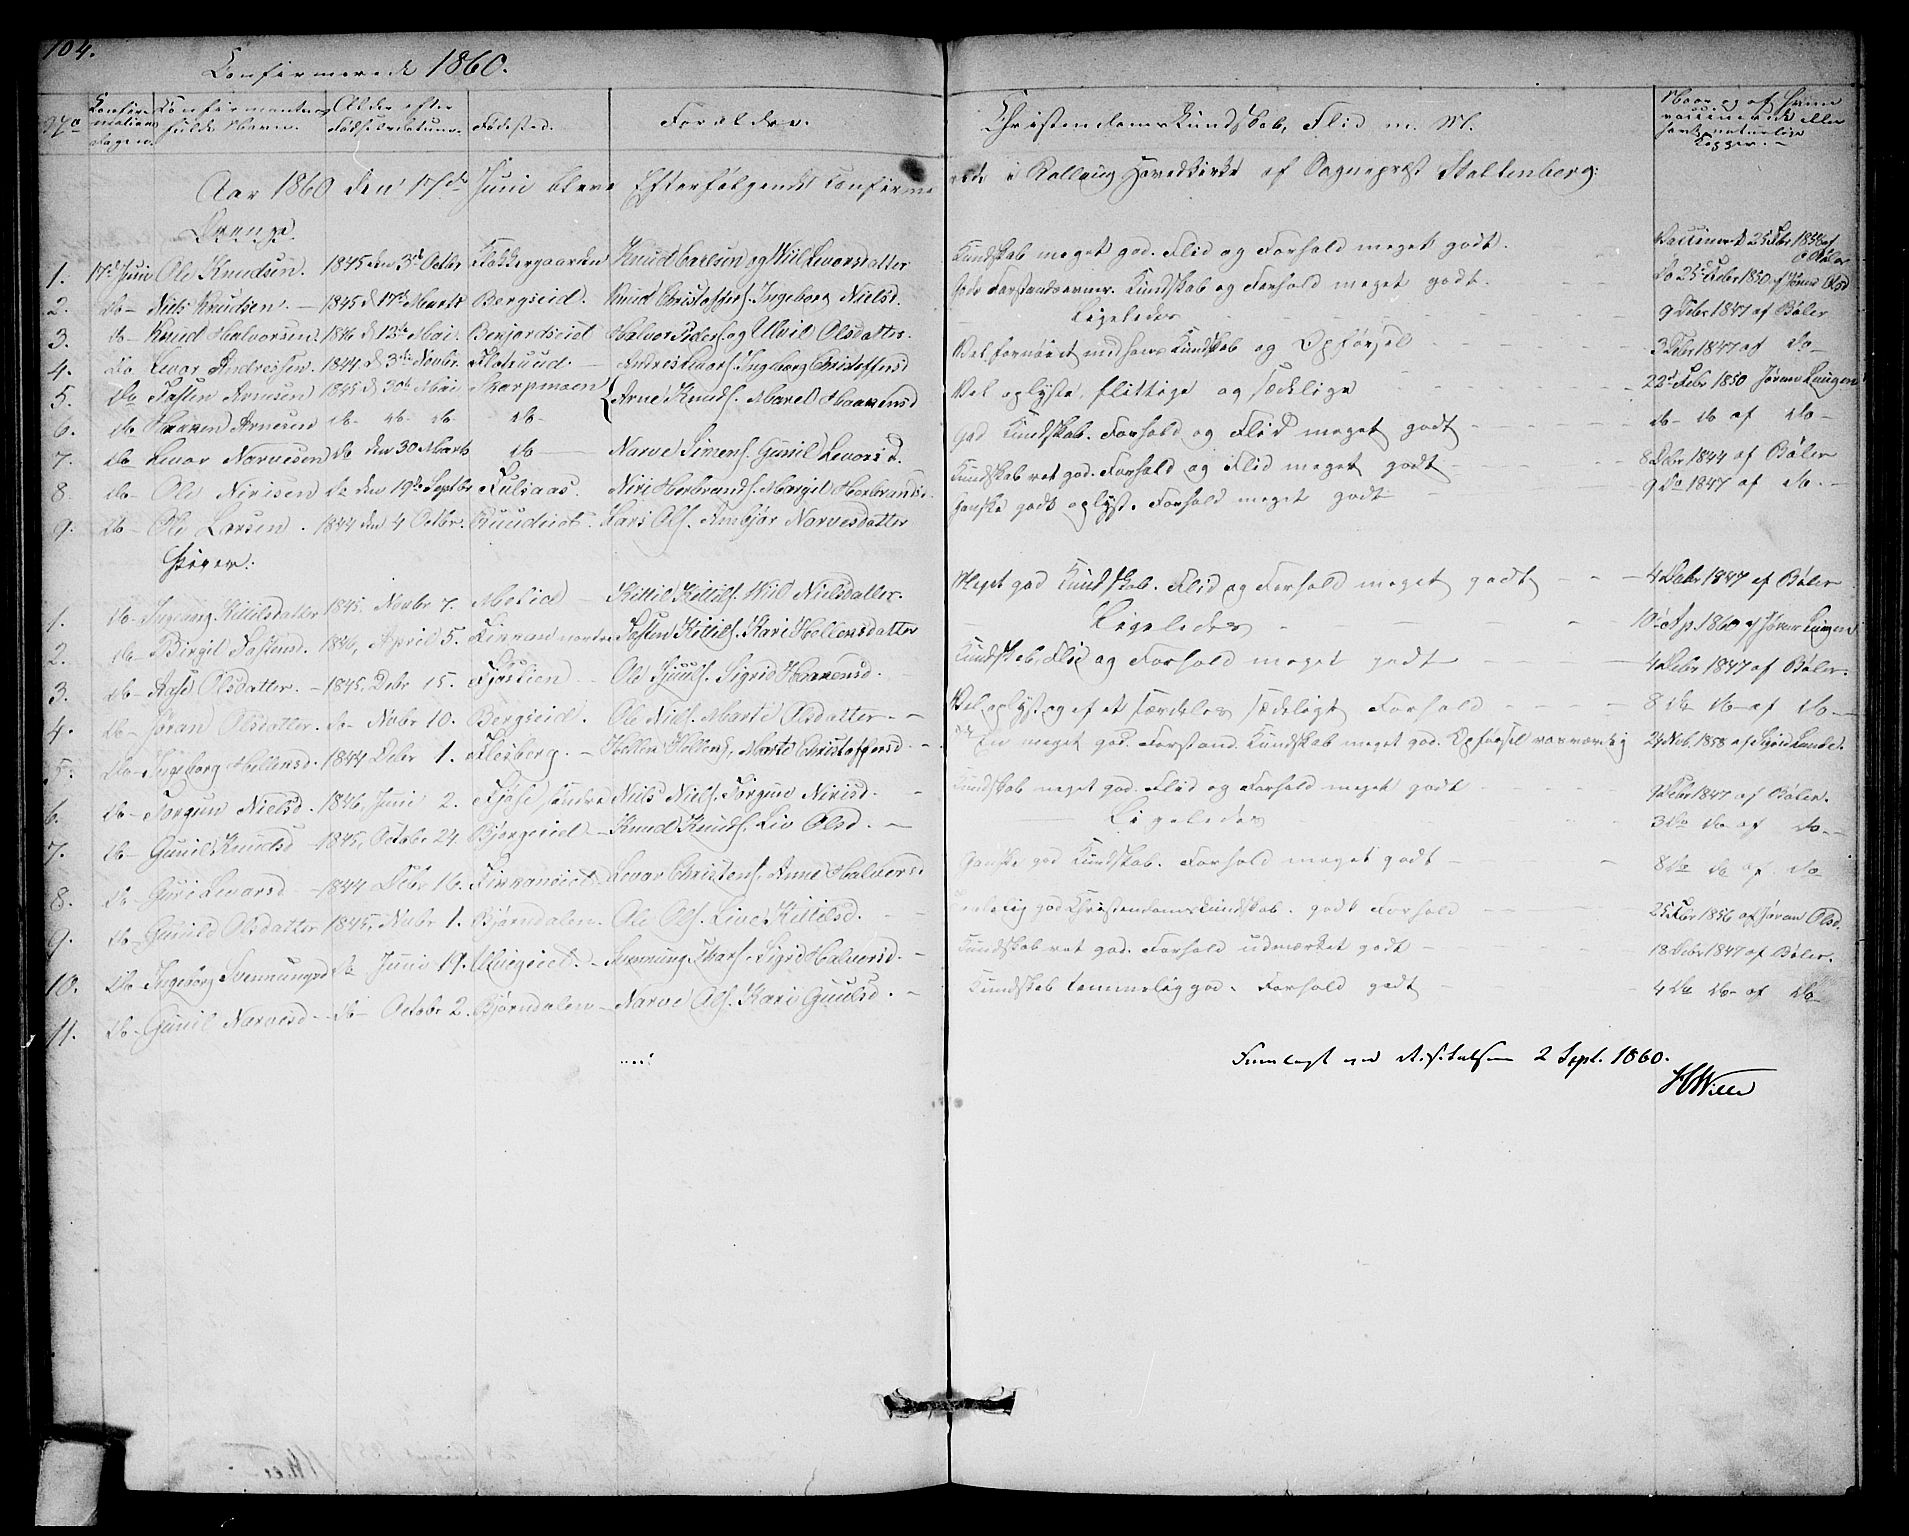 104.
Confirmerede 1860.
No Konfirmations Dagen. Konfirmantens fulde Navn. Alder efter Fødselsdatum. Fødested. Forældre. Christendoms Kundskab, Flid m. M. Naar og af hvem vaccinerede eller havt naturlige Kopper.
Aar 1860 den 17de Juni bleve Efterfølgende Confirmerede i Rollaug Hovedkirke af Sognepræst Stoltenberg:
Drenge.
1. 17de Juni Ole Knudsen. 1845 den 3de Octbr. Knud Carlsen og Mil Levorsdatter Kundskab meget god. Flid og Forhold meget godt.
2. do Niels Knudsen. 1845 d 17de Marts Bergseid. Knud Christoffers. Ingeborg Nielsd. Kundskab og Forhold meget godt. Do 25 Febr 1850 af Jøran Olsd
3. do Knud Halvorsen. 1846 d 13de Mai. Benjordseiet Halvor Peders. og Olsdatter. Ligeledes 9 Debr 1847 af Bøler
4. Do Levor Andressen. 1844 d 3die Novbr. Flatruud Andres Levors. Ingeborg Christoffersd Vel fornøiet med hans Kundskab og Opførsel 3 Debr 1847 af do
5. Do Tosten Arnesen 1845 d 30te Mai Skarpmoen Arne Knuds. Marel Haavensd Vel oplyste, flittige og sædelige 22d Febr 1850 Jøran Lungen
6. do Haaven Arnesen do. do. do do God Kundskab. Forhold og Flid meget godt do do af do
7. do Levor Narvesen do den 30 Marts do Narve Simens. Gunil Levorsd. Kundskab ret god. Forhold og Flid meget godt 8 Debr 1844 af Bøler
8. do Ole Nirisen Do den 19de Septbr Juliaas. Niri Herbrands. Margit Herbrandsd. Ganske godt oplyst. Forhold meget godt 9 Do 1847 af do.
9. do Ole Larsen. 1844 den 4 Octbr. Ruudeiet Lars Ols. Ambjør Narvesdatter
Piger.
1. do Ingeborg Kittilsdatter 1845, Novbr 7. Moeid Kittil Kittils. Mil Nielsdatter. Meget god Kundskab. Flid og Forhold meget godt 4 Debr 1847 af Bøler
2. do Birgit Tostensd. 1846, April 5. nordre Tosten Kittils. Kari Hellensdatter Ligeledes 10 Ap. 1860 af Jøran Lungen
3. do Aase Olsdatter. 1845, Debr 15. Fjøslien Ole Gjuuls. Sigrid Haavensd. Kundskab, Flid og Forhold meget godt 4 Debr 1847 af Bøler.
4. do Jøran Olsdatter. do Nobr 10. Bergseid. Ole Niels. Marte Olsdatter. Vel oplyst og af et særdeles sædeligt Forhold 8 do do af do
5. Do Ingeborg Hellensd. 1844 Debr 1. Flesberg. Hellen Hellens, Marte Christoffersd. En meget god Forstand. Kundskab meget god. Opførsel rosværdig 24 Nob. 1858 af Sigrid Lande.
6. do Torgun Nielsd. 1846, Juni 2. Fjøse søndre Niels Niels. Torgun Nirisd. Kundskab meget god. Flid og Forhold meget godt Debr 1847 af Bøler.
7. do Gunil Knudsd 1845, Octobr 24. Bjørgeeiet Knud Knuds. Liv Olsd. Ligeledes 3 Do do af do.
8. do Guri Levorsd 1844 Debr 16. Levor Christens. Anne Halvorsd Ganske god Kundskab. Forhold meget godt 8 do do af do
9. do Gunild Olsdatter 1845, Nobr 1. Bjørndalen. Ole Ols. Live Kittilsd. god Christendomskundskab. godt Forhold 25 Febr 1856 af Jøran Olsd.
10. do Ingeborg Svennungsd do Juni 19. Svennung Sigrid Halvorsd. Kundskab ret god. Forhold udmærket godt 18 Debr 1847 af Bøler.
11. do Gunil Narvesd do Octobr 2. Bjørndalen Narve Ols. Kari Guulsd. Kundskab temmelig god. Forhold godt 4 do do af do
Fremlagt ved Visitatsen 2 Sept. 1860.
Wille